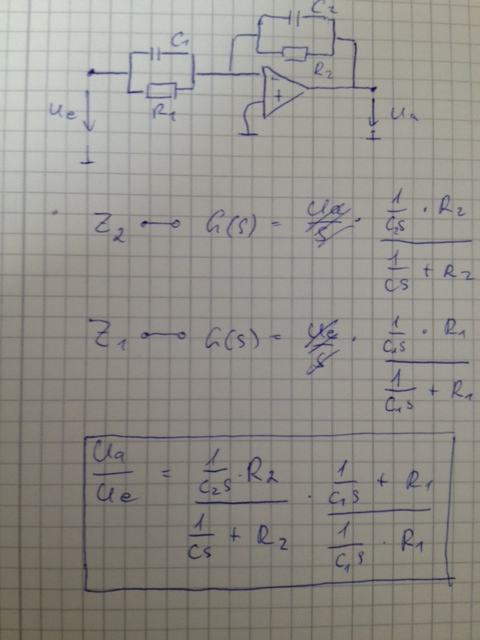 C₁ C₂
R₁ R₂
- +
Ue Ua
Z₂ ○—○ G(s) = Ua/s · (1/(C₂s) · R₂) / (1/(Cs) + R₂)
Z₁ ○—○ G(s) = Ue/s · (1/(C₁s) · R₁) / (1/(C₁s) + R₁)
Ua/Ue = (1/(C₂s) · R₂) / (1/(Cs) + R₂) · (1/(C₁s) + R₁) / (1/(C₁s) · R₁)